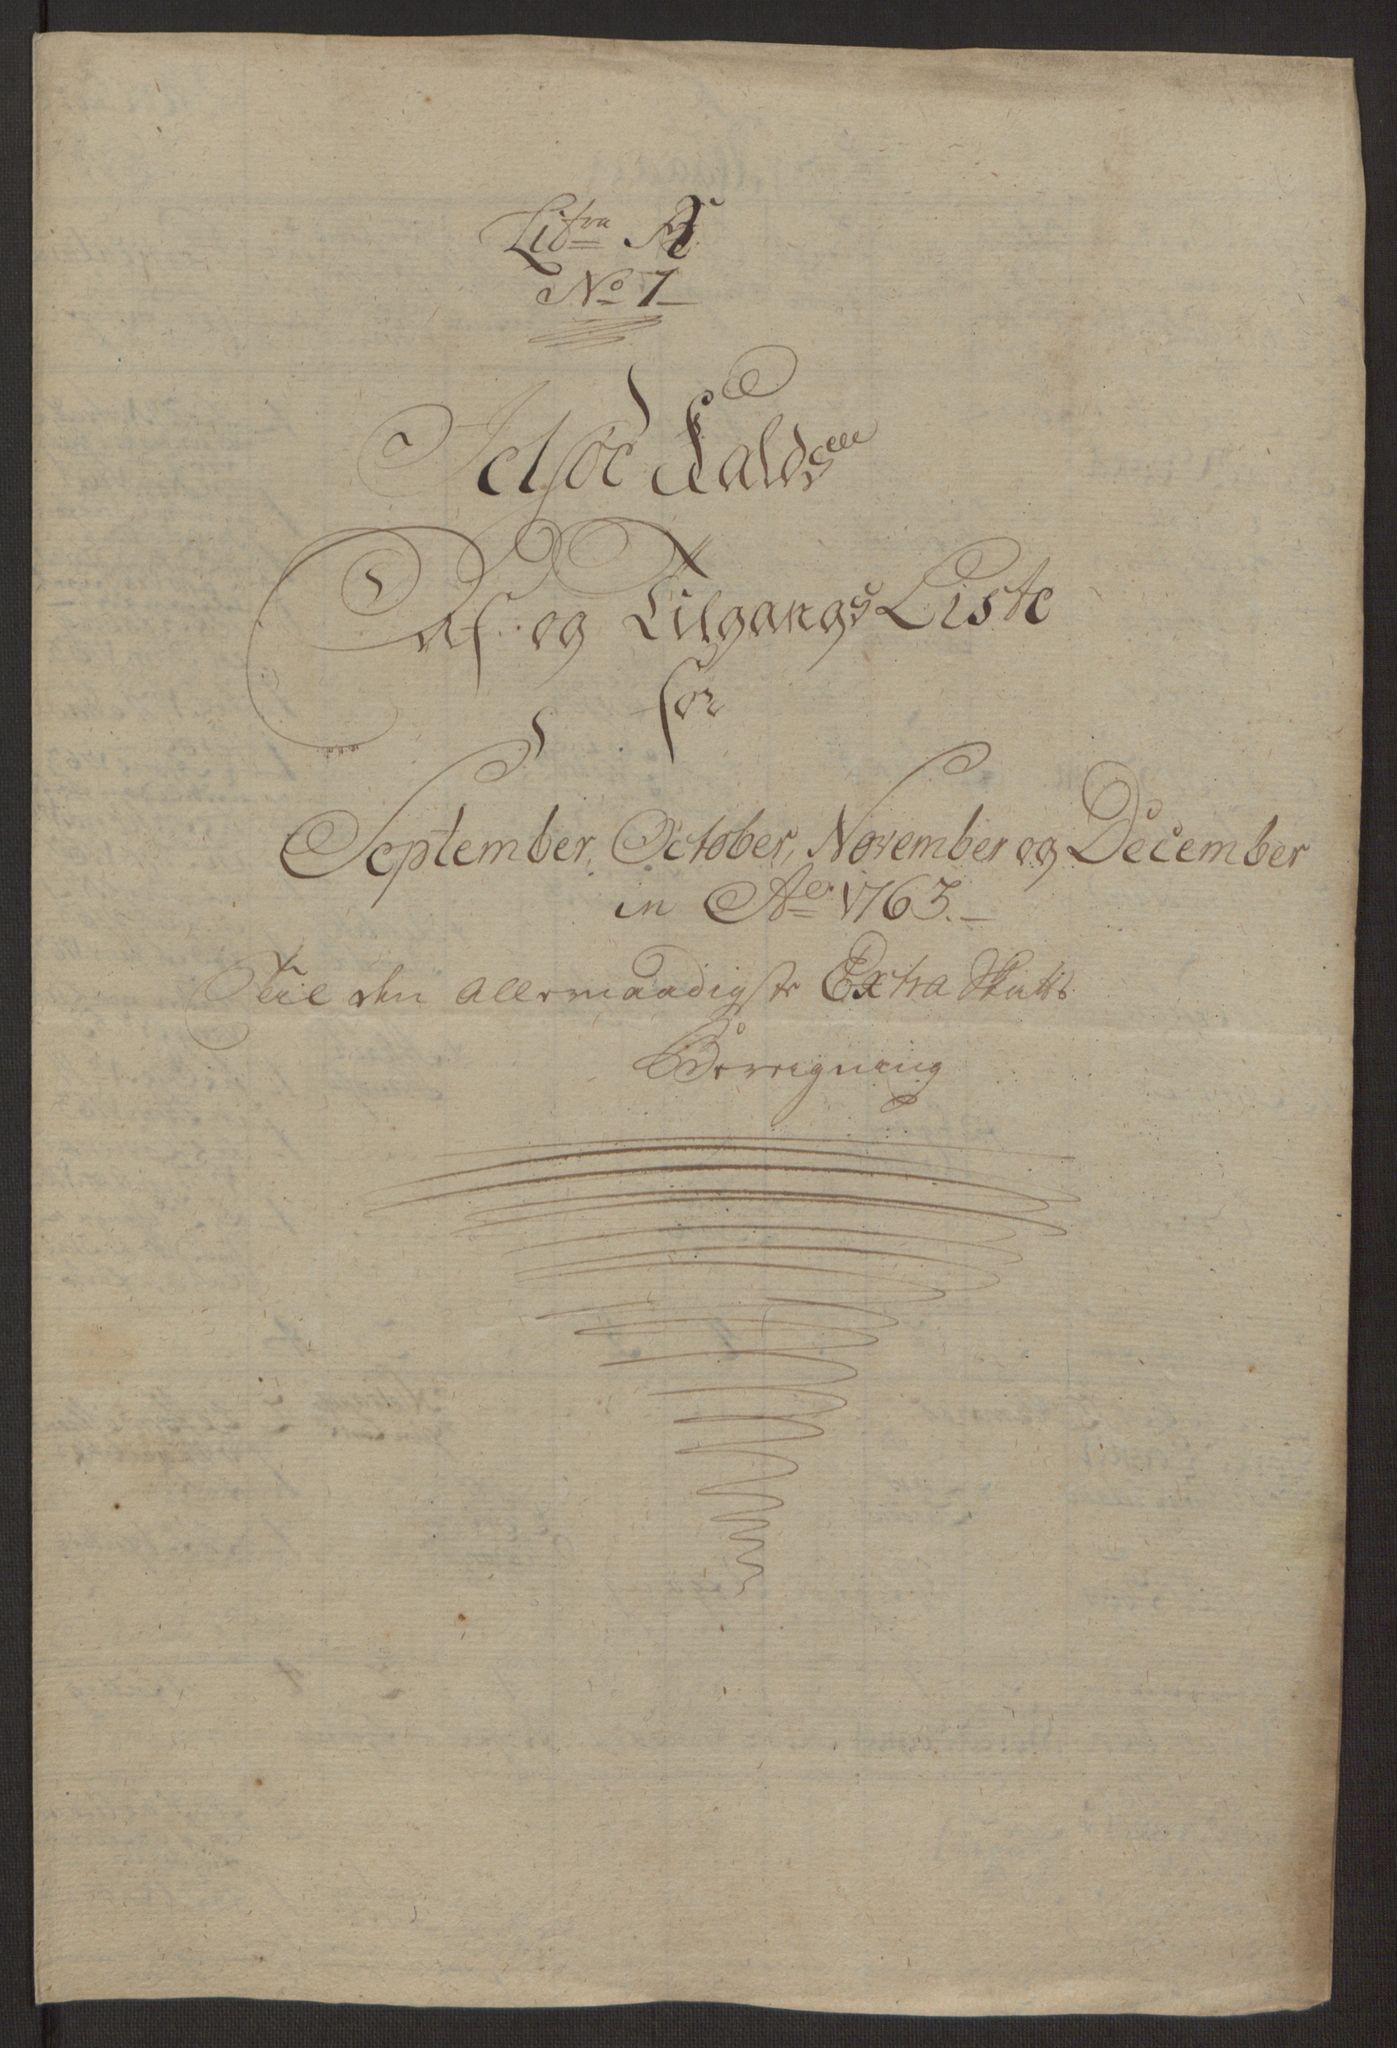 Litra A
No 1
Jelsøe Kalds
Af og Tilgangs Liste
for
September, October, November og December
in Ao 1763.
Till den Allernaadigste Extra Skatts
Beregning